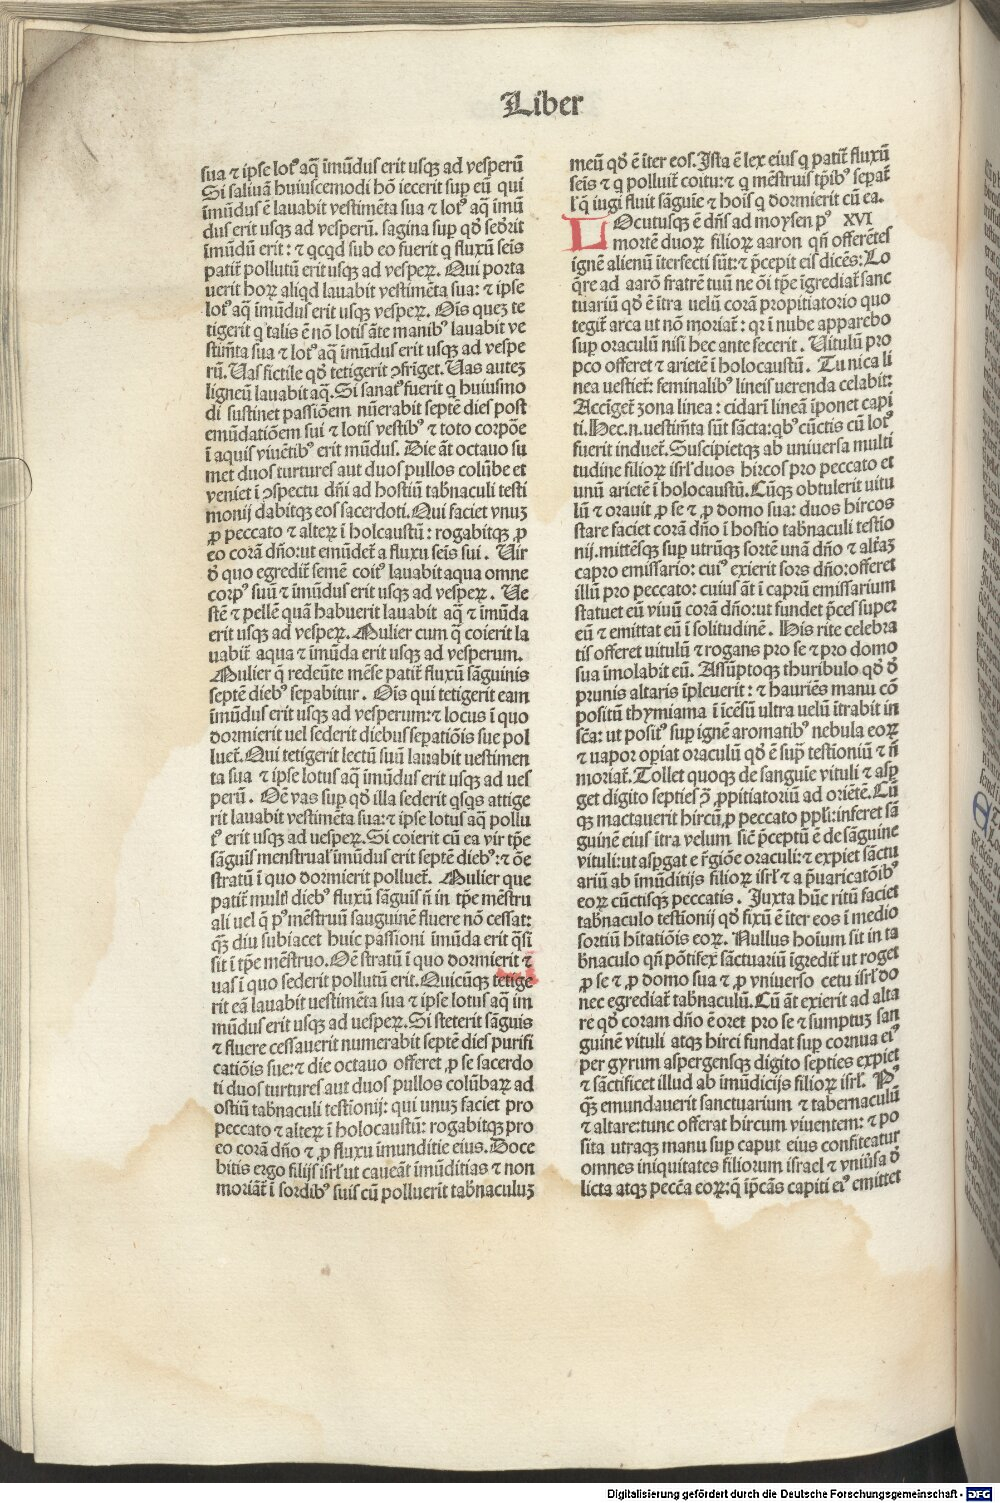 Liber
sua ⁊ ipse lotꝰ aq̃ ĩmũdus erit usqꝫ ad vesperũ
Si salivã huiuscemodi hõ iecerit suꝑ eũ qui
ĩmũdus ẽ lavabit vestimẽta sua ⁊ lotꝰ aqꝫ ĩmũ
dus erit usqꝫ ad vesperũ. sagina suꝑ qđ seđrit
ĩmũdũ erit: ⁊ qcqd sub eo fuerit q fluxũ seis
patit̃ pollutũ erit usqꝫ ad vesperꝝ. Qui porta
uerit horꝝ aliqd lavabit vestimẽta sua: ⁊ ipse
lotꝰ aq̃ ĩmũdus erit usqꝫ vesperꝝ. Oĩs queꝫ te
tigerit q talis ẽ nõ lotis ãte manibꝰ lavabit ve
stim̃ta sua ⁊ lotꝰ aq̃ ĩmũdus erit usqꝫ ad vespe
rũ. Uas fictile qđ tetigerit ↄfriget. Uas auteꝫ
ligneũ lavabit aq̃. Si sanatꝰ fuerit q huiusmo
di sustinet passiõem nũerabit septẽ dies post
emũdatiõem sui ⁊ lotis vestibꝰ ⁊ toto corpõe
ĩ aquis viuẽtibꝰ erit mũdus. Die ãt octavo su
met duos turtures aut duos pullos colũbe et
veniet ĩ ↄspectu dñi ad hostiũ tab̃naculi testi
monij dabitqꝫ eos sacerdoti. Qui faciet vnuꝫ
ꝓ peccato ⁊ alterꝝ ĩ holcaustũ: rogabitqꝫ ꝓ
eo corã dño: ut emũdet̃ a fluxu seis sui. Uir
đ quo egredit̃ semẽ coitꝰ lavabit aqua omne
corpꝰ suũ ⁊ ĩmũdus erit usqꝫ ad vesperꝝ. Ue
stẽ ⁊ pellẽ quã habuerit lavabit aq̃ ⁊ ĩmũda
erit usqꝫ ad vesperꝝ. Mulier cum q̃ coierit la
uabit̃ aqua ⁊ ĩmũda erit usqꝫ ad vesperum.
Mulier q̃ redeũte mẽse patit̃ fluxũ sãguinis
septẽ diebꝰ seꝑabitur. Oĩs qui tetigerit eam
ĩmũdus erit usqꝫ ad vesperum: ⁊ locus ĩ quo
dormierit uel sederit diebus seꝑatiõis sue pol
luet̃. Qui tetigerit lectũ suũ lavabit uestimen
ta sua ⁊ ipse lotus aq̃ ĩmũdus erit usqꝫ ad ues
perũ. Oẽ vas suꝑ qđ illa sederit qsqs attige
rit lauabit vestimẽta sua: ⁊ ipse lotus aq̃ pollu
tꝰ erit usqꝫ ad uesperꝝ. Si coierit cũ ea vir tp̃e
sãguĩs menstrualꝰ ĩmũdus erit septẽ diebꝰ: ⁊ õe
stratũ ĩ quo dormierit polluet̃. Mulier que
patit̃ multꝰ diebꝰ fluxũ sãguĩs ñ in tp̃e mẽstru
ali uel q̃ pꝰ mẽstruũ sanguinẽ fluere nõ cessat:
q̃ꝫ diu subiacet huic passioni ĩmũda erit q̃si
sit ĩ tp̃e mẽstruo. Oẽ stratũ ĩ quo dormierit ⁊
uas ĩ quo sederit pollutũ erit. Quicũqꝫ tetige
rit eã lauabit uestimẽta sua ⁊ ipse lotus aq̃ im
mũdus erit usqꝫ ad uesperꝝ. Si steterit sãguis
⁊ fluere cessauerit numerabit septẽ dies purifi
catiõis sue: ⁊ die octavo offeret ꝓ se sacerdo
ti duos turtures aut duos pullos colũbarꝝ ad
ostiũ tab̃naculi testĩonij: qui unuꝫ faciet pro
peccato ⁊ alterꝝ ĩ holocaustũ: rogabitqꝫ pro
eo corã dño ⁊ ꝓ fluxu ĩmunditie eius. Doce
bitis ergo filijs isrl̃ ut caueãt ĩmũditias ⁊ non
moriãt̃ ĩ sordibꝰ suis cũ polluerit tab̃naculuꝫ
meũ qđ ẽ ĩter eos. Ista ẽ lex eius q patit̃ fluxũ
seis ⁊ q polluit̃ coitu: ⁊ q mẽstruis tꝑibꝰ seꝑat̃
l̃ q̃ iugi fluit sãguĩe ⁊ hoĩs q dormierit cũ ea.
LOcutusqꝫ ẽ dñs ad moysen pꝰ XVI
mortẽ duorꝝ filiorꝝ aaron qñ offerẽtes
ignẽ alienũ ĩterfecti sũt: ⁊ p̃cepit eis dicẽs: Lo
q̃re ad aarõ fratrẽ tuũ ne õi tp̃e ĩgrediat̃ sanc
tuariũ qđ ẽ ĩtra uelũ corã propitiatorio quo
tegit̃ arca ut nõ moriat̃: qꝛ ĩ nube apparebo
suꝑ oraculũ nisi hec ante fecerit. Uitulũ pro
pco offeret ⁊ arietẽ ĩ holocaustũ. Tunica li
nea uestiet̃: feminalibꝰ lineis uerenda celabit:
Accĩget̃ zona linea: cidarĩ lineã ĩponet capi
ti. Hec.n. uestim̃ta sũt sãcta: qbꝰ cũctis cũ lotꝰ
fuerit induet̃. Suscipietqꝫ ab uniuersa multi
tudine filiorꝝ isrl̃ duos hircos pro peccato et
unũ arietẽ ĩ holocaustũ. Cũqꝫ obtulerit uitu
lũ ⁊ orauit ꝓ se ⁊ ꝓ domo sua: duos hircos
stare faciet corã dño ĩ hostio tab̃naculi testĩo
nij. mittẽsqꝫ suꝑ utrũqꝫ sortẽ unã dño ⁊ alt̃aꝫ
capro emissario: cuiꝰ exierit sors dño: offeret
illũ pro peccato: cuius ãt ĩ caprũ emissarium
statuet eũ viuũ corã dño: ut fundet p̃ces super
eũ ⁊ emittat eũ ĩ solitudinẽ. His rite celebra
tis offeret uitulũ ⁊ rogans pro se ⁊ pro domo
sua ĩmolabit eũ. Assũptoqꝫ thuribulo qđ đ
prunis altaris ĩpleuerit: ⁊ hauriẽs manu cõ
positũ thymiama ĩ ĩcẽsũ ultra uelũ ĩtrabit in
sc̃a: ut positꝰ suꝑ ignẽ aromatibꝰ nebula eorꝝ
⁊ uapor oꝑiat oraculũ qđ ẽ sup̃ testĩoniũ ⁊ ñ
moriat̃. Tollet quoqꝫ de sanguĩe vituli ⁊ asꝑ
get digito septies ↄ̃ ꝓpitiatoriũ ad oriẽtẽ. Cũ
qꝫ mactauerit hircũ ꝓ peccato pp̃li: inferet sã
guinẽ eius ĩtra velum sic̃ p̃ceptũ ẽ de sãguine
vituli: ut asꝑgat e r̃giõe oraculi: ⁊ expiet sãctu
ariũ ab ĩmũditijs filiorꝝ isrl̃ ⁊ a p̃uaricatõibꝰ
eorꝝ cũctisqꝫ peccatis. Juxta hũc ritũ faciet
tab̃naculo testĩonij qđ fixũ ẽ ĩter eos ĩ medio
sortiũ hĩtatiõis eorꝝ. Nullus hoĩum sit in ta
b̃naculo qñ põtifex sãctuariũ ĩgredit̃ ut roget
ꝓ se ⁊ ꝓ domo sua ⁊ ꝓ vniuerso cetu isrl̃ do
nec egrediat̃ tab̃naculũ. Cũ ãt exierit ad alta
re qđ coram dño ẽ oret pro se ⁊ sumptuꝫ san
guinẽ vituli atqꝫ hirci fundat suꝑ cornua eiꝰ
per gyrum aspergensqꝫ digito septies expiet
⁊ sãctificet illud ab ĩmũdicijs filiorꝝ isrl̃. Pꝰ
q̃ꝫ emundauerit sanctuarium ⁊ tabernaculũ
⁊ altare: tunc offerat hircum viuentem: ⁊ po
sita utraqꝫ manu suꝑ caput eius confiteatur
omnes iniquitates filiorum israel ⁊ vniũsa đ
licta atqꝫ pecc̃a eorꝝ: q̃ ĩp̃cãs capiti eiꝰ emittet
Digitalisierung gefördert durch die Deutsche Forschungsgemeinschaft - DFG